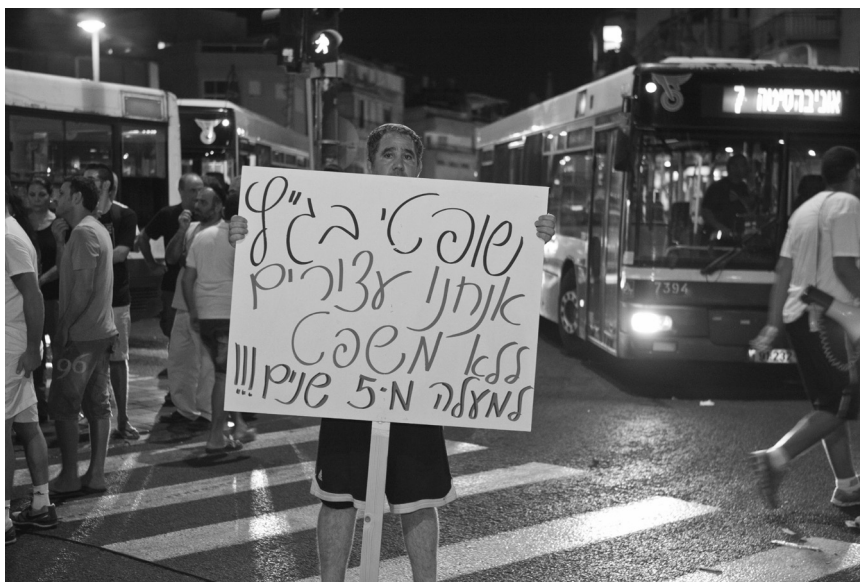 שופטי בג״ץ
אנחנו עצורים
ללא משפט
למעלה מ-5 שנים!!!
7 אוניברסיטה
7394
96